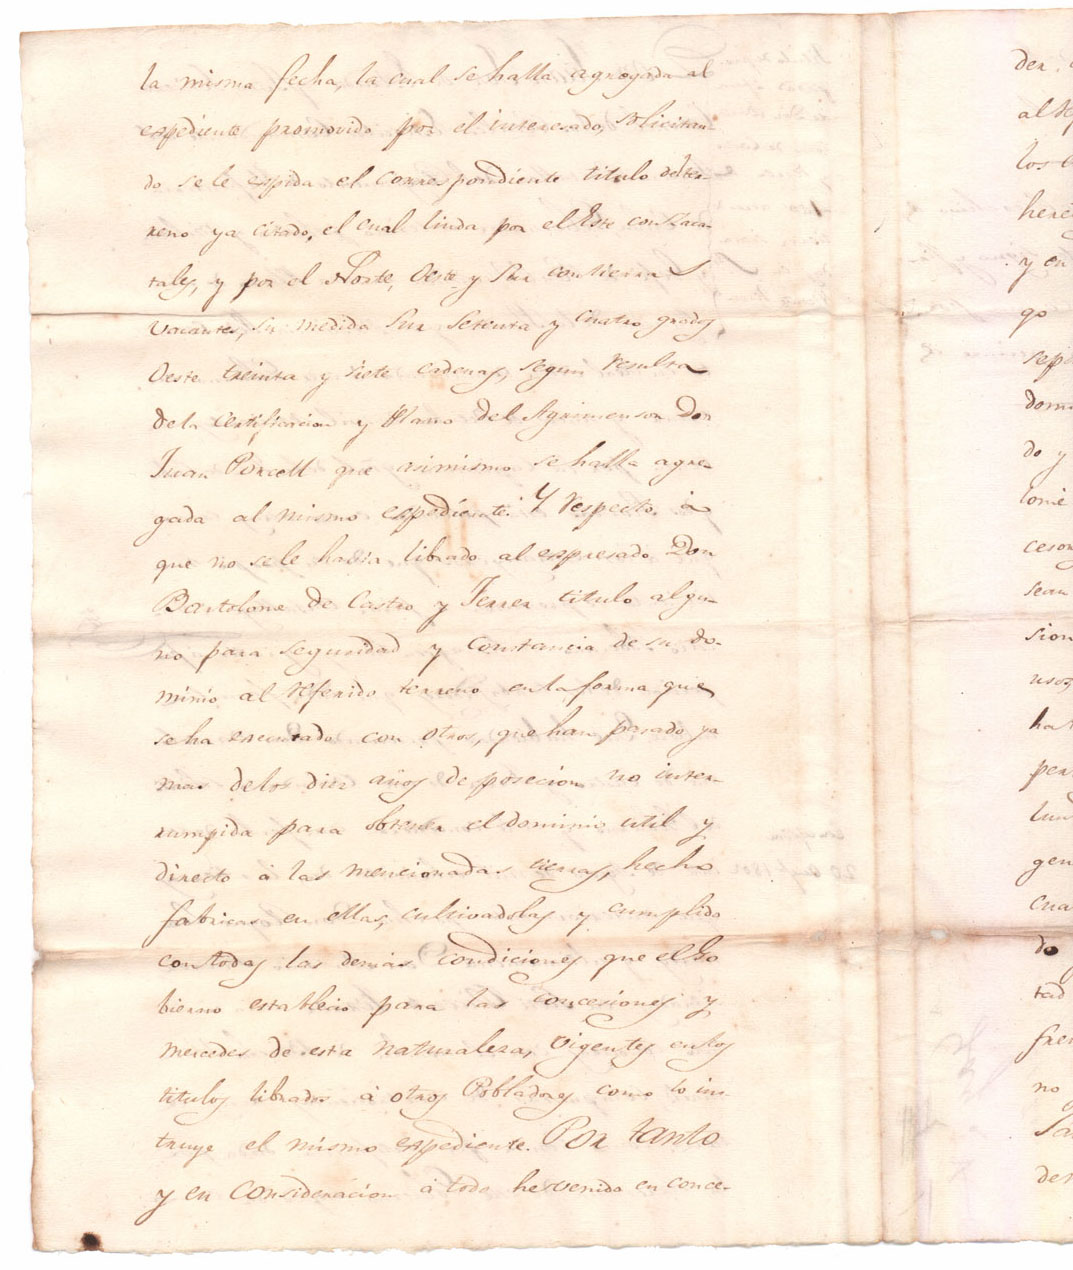 la misma fecha, la cual se halla agregada al
expediente promovido por el interesado, solicitan-
do se le expida el correspondiente titulo del ter-
reno ya citado, el cual linda por el Este con Saca-
tales, y por el Norte, Oeste y Sur con tierras
vacantes, su medida Sur setenta y cuatro grados
Oeste treinta y siete cadenas, segun resulta
dela certificacion y Plano del Agrimensor Don
Juan Purcell que asimismo se halla agre-
gada al mismo expediente. Y respecto à
que no se le havia librado al expresado Don
Bartolome de Castro y Ferrer titulo algu-
no para seguridad y constancia de su do-
minio al referido terreno en la forma que
se ha executado con otros, que han pasado ya
mas delos diez años de posecion no inter-
rumpida para obtener el dominio util y
directo à las mencionadas tierras, hecho
fabricas en ellas, cultivadolas y cumplido
con todas las demás condiciones que el Go
bierno establecio para las concesiones y
mercedes de esta naturaleza, vigentes en los
titulos librados à otros Pobladores como lo ins-
truye el mismo expediente. Por tanto
y en consideracion à todo he venido en conce-
der
al
los
y en
go
do y
sean
sion
usos
ha
gen
cua
do
tad
no